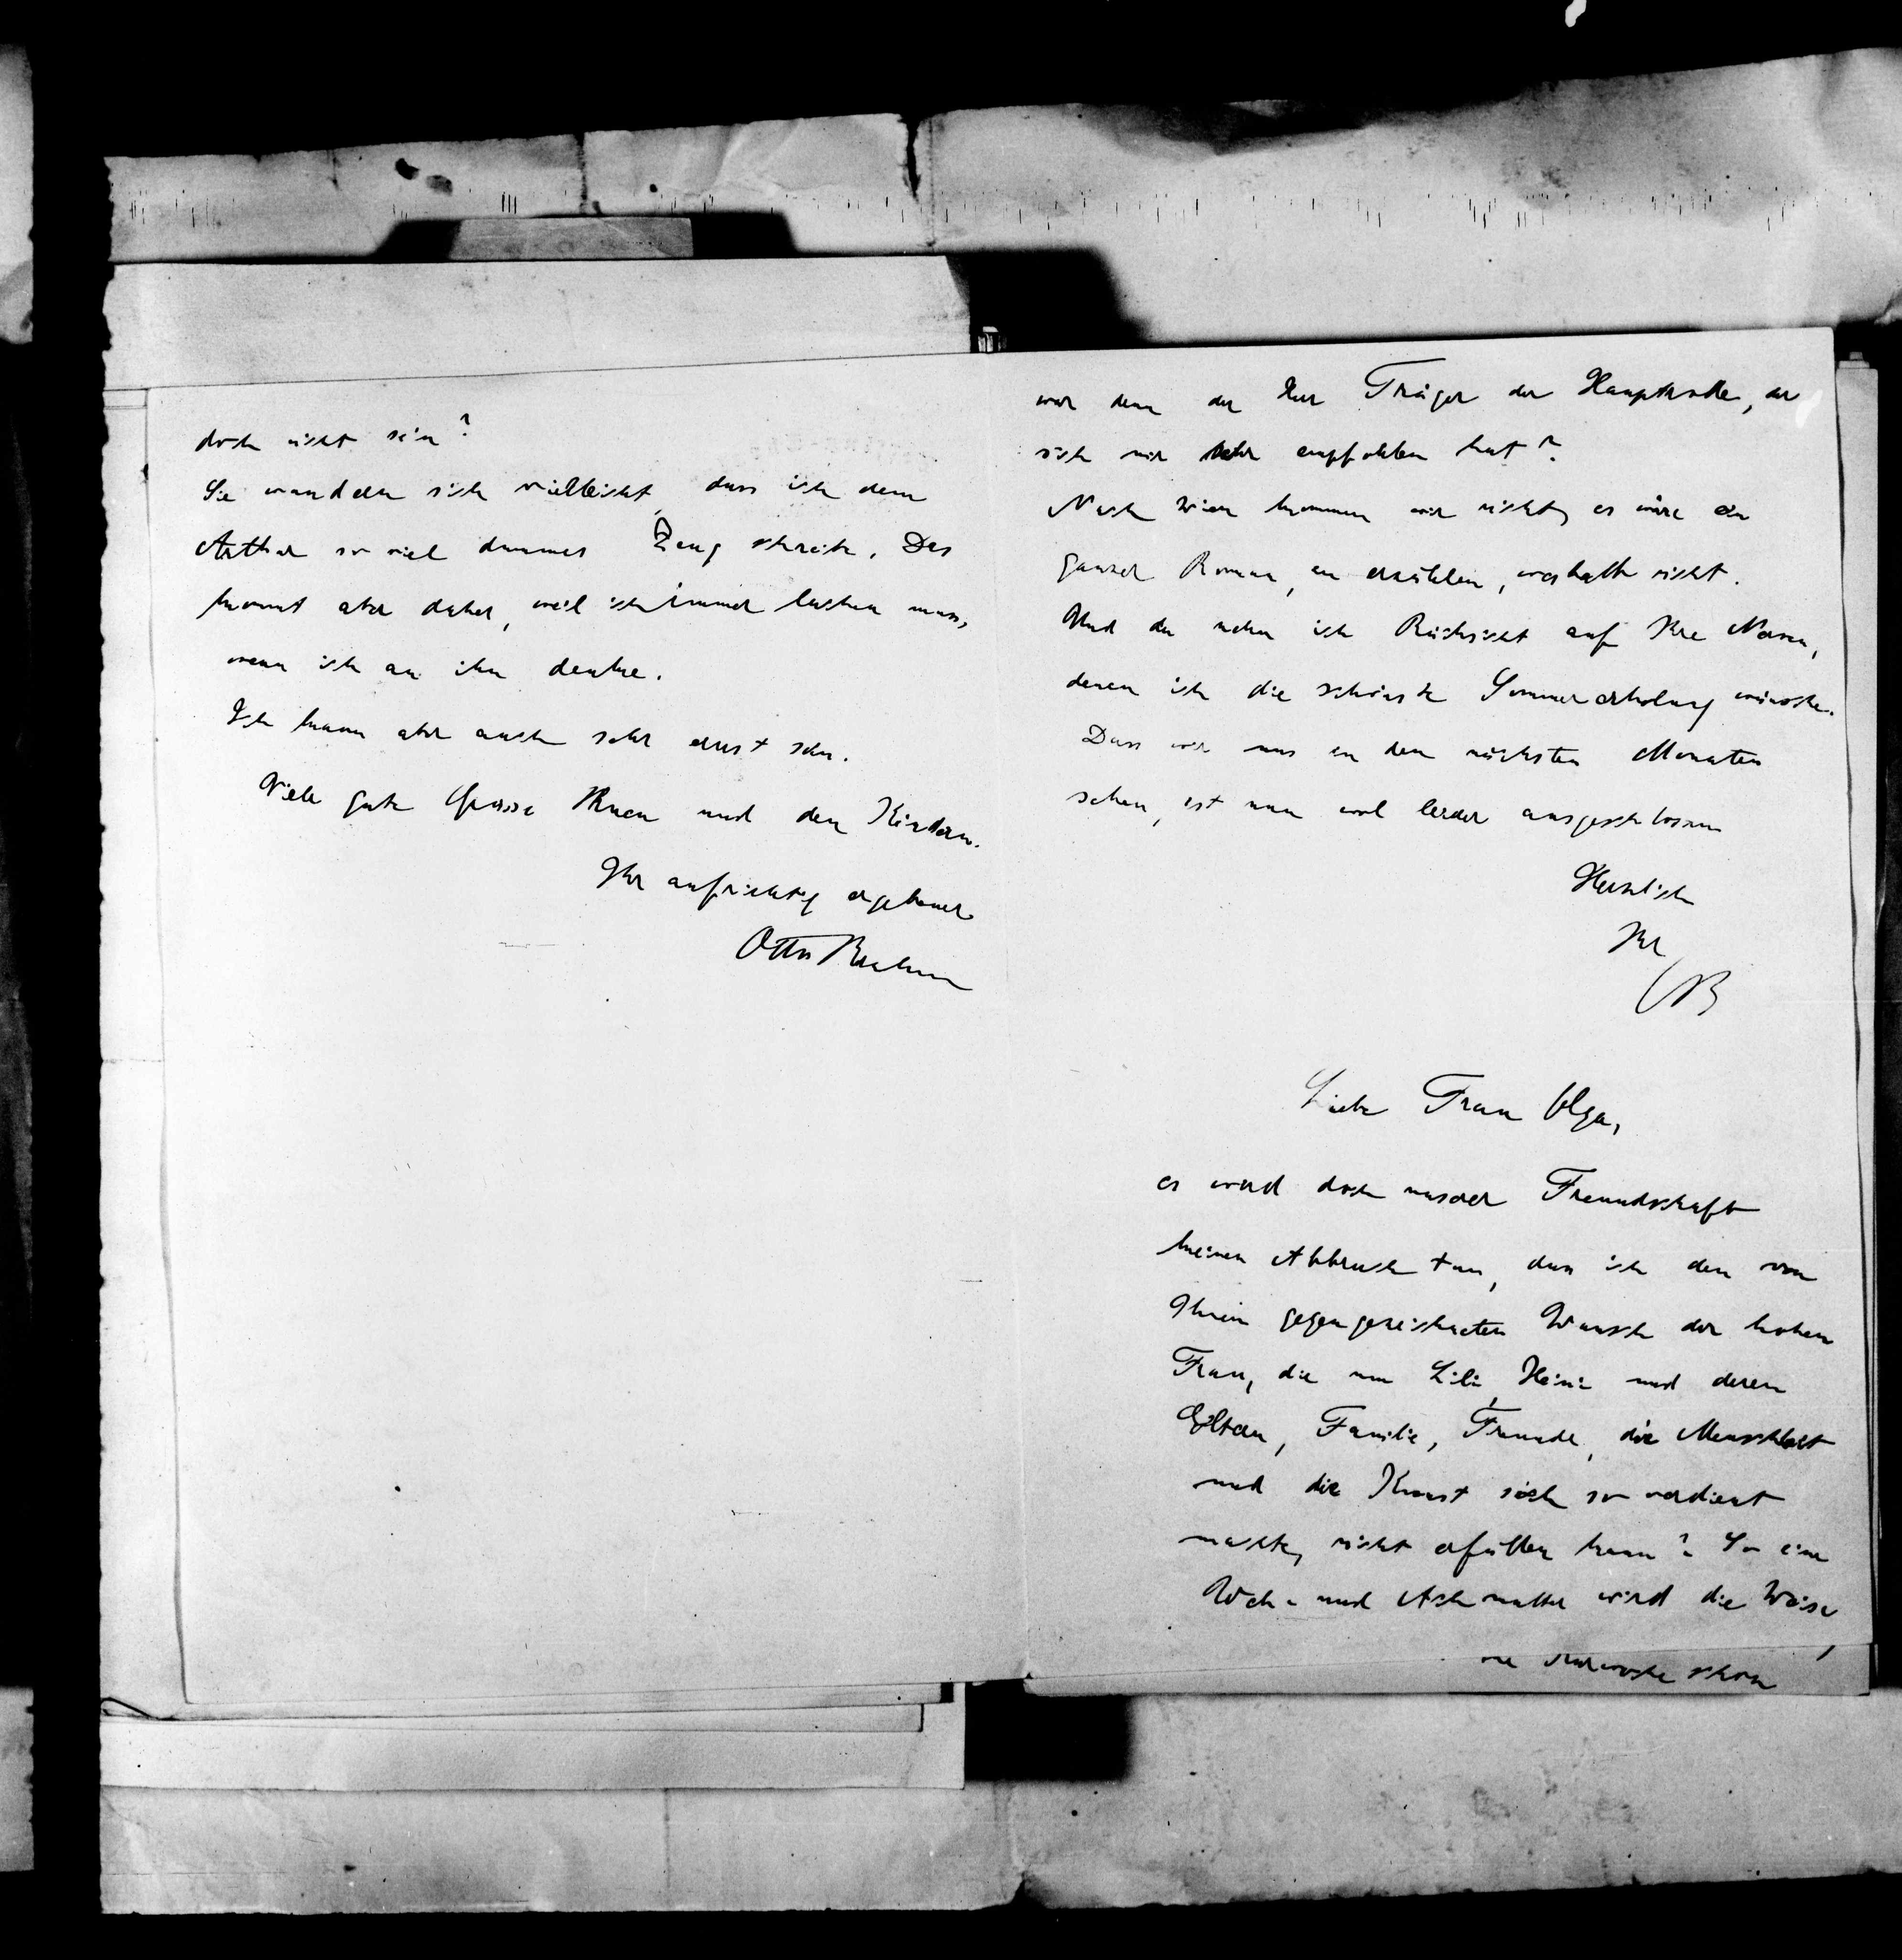 doch nicht sein?
Sie wundern sich vielleicht, dass ich dem
Arthur so viel dummes Zeug schreibe. Das
kommt aber daher, weil ich immer lachen muss,
wenn ich an ihn denke.
Ich kann aber auch sehr ernst sein.
Viele gute Grüsse Ihnen und den Kindern.
Ihr aufrichtig ergebener
Otto Brahm
war denn der Herr Träger der Hauptrolle, der
sich mir sehr empfohlen hat?
Nach Wien kommen wir nicht, es wäre ein
ganzer Roman, zu erzählen, weshalb nicht.
Und da nehm ich Rücksicht auf Ihre Nerven,
denen ich die schönste Sommererholung wünsche.
Dass wir uns in den nächsten Monaten
sehen, ist nun wol leider ausgeschlossen
Herzlich
Ihr
OB
Liebe Frau Olga,
es wird doch unserer Freundschaft
keinen Abbruch tun, dass ich den von
Ihnen gegengezeichneten Wunsch der hohen
Frau, die um Lili, Heini und deren
Eltern, Familie, Freunde, die Menschheit
und die Kunst sich so verdient
machte, nicht erfüllen kann? So eine
Weh- und Achmutter wird die Waise
schon